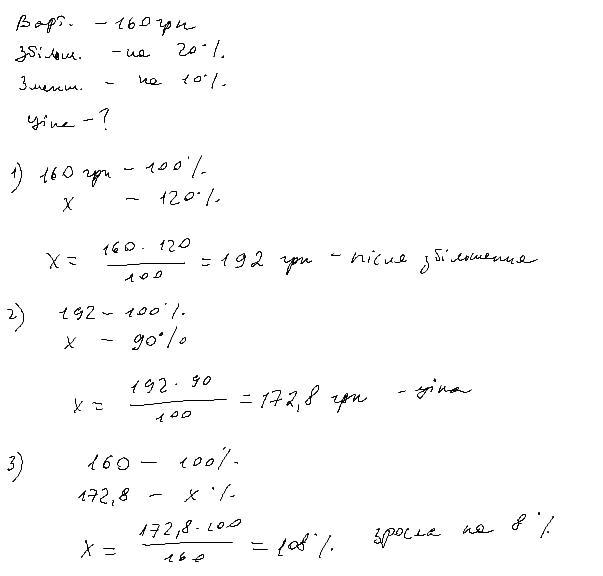 Варт. - 160 грн
Збільш. - на 20%.
Зменш. - на 10%.
Ціна - ?
1) 160 грн - 100%.
x - 120%.
x = 160 · 120 / 100 = 192 грн - після збільшення
2) 192 - 100%.
x - 90%
x = 192 · 90 / 100 = 172,8 грн - ціна
3) 160 - 100%.
172,8 - x%.
x = 172,8 · 100 / 160 = 108%. зросла на 8%